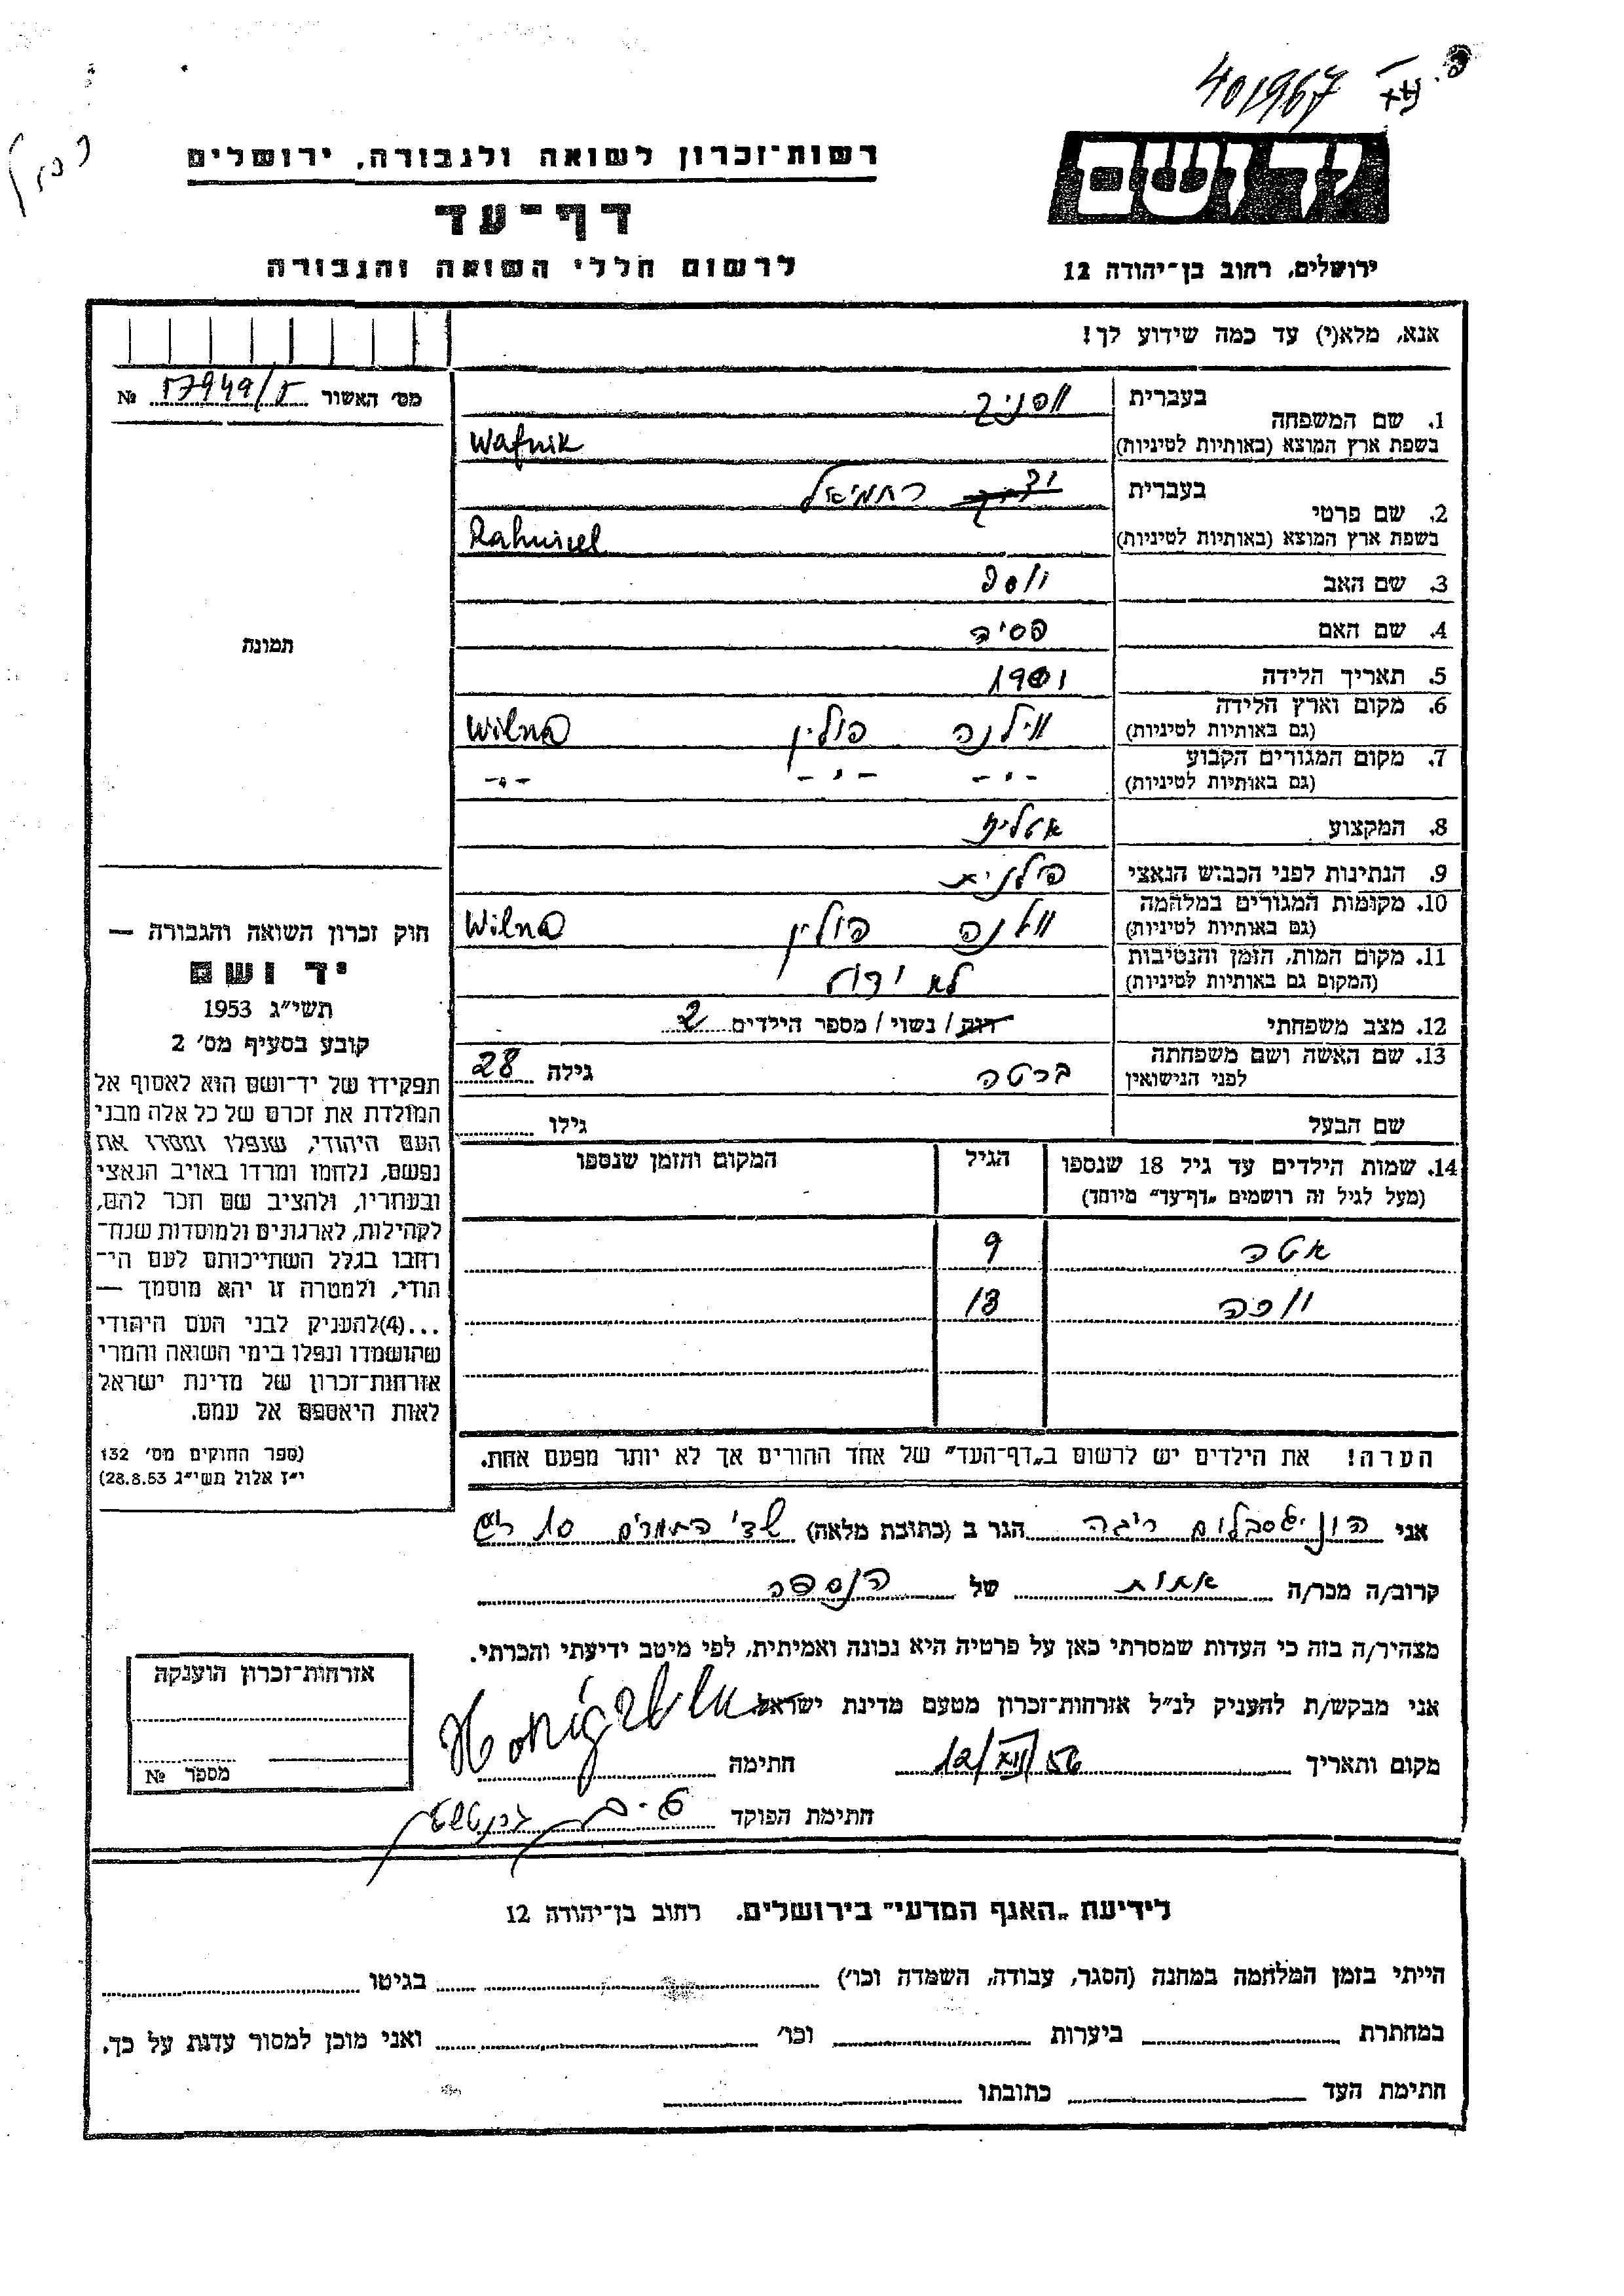 401967
רשות־זכרון לשואה ולגבורה, ירושלים
יד ושם
דף־עד
לרשום חללי השואה והגבורה
ירושלים, רחוב בן־יהודה 12
אנא, מלא(י) עד כמה שידוע לך!
מס׳ האשור № 17949/5
1. שם המשפחה
בעברית וופניק
בשפת ארץ המוצא (באותיות לטיניות) Wafnik
2. שם פרטי
בעברית רחמיאל
בשפת ארץ המוצא (באותיות לטיניות) Rahmiel
3. שם האב יוסף
4. שם האם פסיה
5. תאריך הלידה 1901
6. מקום וארץ הלידה (גם באותיות לטיניות) ווילנה פולין Wilna
7. מקום המגורים הקבוע (גם באותיות לטיניות) -"- -"- -"-
8. המקצוע
9. הנתינות לפני הכבוש הנאצי פולנית
10. מקומות המגורים במלחמה (גם באותיות לטיניות) ווילנה פולין Wilna
11. מקום המות, הזמן והנסיבות (המקום גם באותיות לטיניות) לא ידוע
12. מצב משפחתי רווק / נשוי / מספר הילדים 2
13. שם האשה ושם משפחתה לפני הנישואין ברטה גילה 28
שם הבעל גילו
14. שמות הילדים עד גיל 18 שנספו (מעל לגיל זה רושמים „דף־עד״ מיוחד) הגיל המקום והזמן שנספו
אטה 9
13
הערה! את הילדים יש לרשום ב„דף־העד״ של אחד ההורים אך לא יותר מפעם אחת.
תמונה
חוק זכרון השואה והגבורה —
יד ושם
תשי״ג 1953
קובע בסעיף מס׳ 2
תפקידו של יד־ושם הוא לאסוף אל
המולדת את זכרם של כל אלה מבני
העם היהודי, שנפלו ומסרו את
נפשם, נלחמו ומרדו באויב הנאצי
ובעוזריו, ולהציב שם וזכר להם,
לקהילות, לארגונים ולמוסדות שנח־
רבו בגלל השתייכותם לעם הי־
הודי, ולמטרה זו יהא מוסמך —
...(4)להעניק לבני העם היהודי
שהושמדו ונפלו בימי השואה והמרי
אזרחות־זכרון של מדינת ישראל
לאות היאספם אל עמם.
(ספר החוקים מס׳ 132
י״ז אלול תשי״ג 28.8.53)
אני הוניגסבלום ריגה הגר ב (כתובת מלאה) שד׳ התמרים 10
קרוב/ה מכר/ה אחות של הנספה
מצהיר/ה בזה כי העדות שמסרתי כאן על פרטיה היא נכונה ואמיתית, לפי מיטב ידיעתי והכרתי.
אני מבקש/ת להעניק לנ״ל אזרחות־זכרון מטעם מדינת ישראל
מקום ותאריך 12/VII/56 חתימה
חתימת הפוקד
אזרחות־זכרון הוענקה
מספר №
לידיעת „האגף המדעי״ בירושלים. רחוב בן־יהודה 12
הייתי בזמן המלחמה במחנה (הסגר, עבודה, השמדה וכו׳) בגיטו
במחתרת ביערות וכו׳ ואני מוכן למסור עדות על כך.
חתימת העד כתובתו